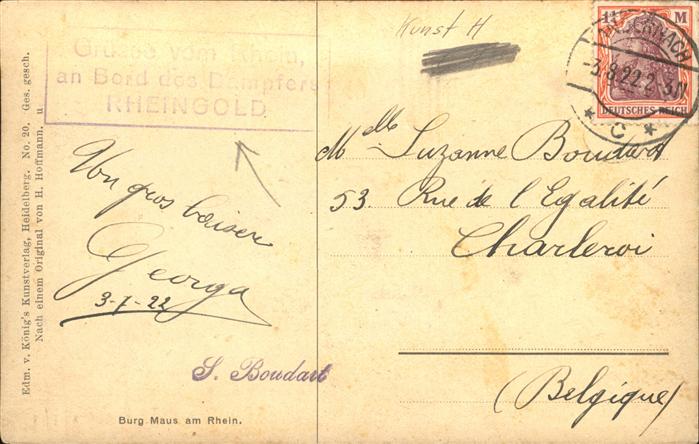 Kunst H
Grüsse vom Rhein,
an Bord des Dampfers
RHEINGOLD
1¼ M
DEUTSCHES REICH
ANDERNACH
-3.8.22.2-3N
* C *
Un gros baiser
Georga
3-7-22
S. Boudart
Melle Suzanne Boudart
53. Rue de l'Egalité
Charleroi
(Belgique)
Burg Maus am Rhein.
Edm. v. König's Kunstverlag, Heidelberg. No. 20. Ges. gesch.
Nach einem Original von H. Hoffmann. u